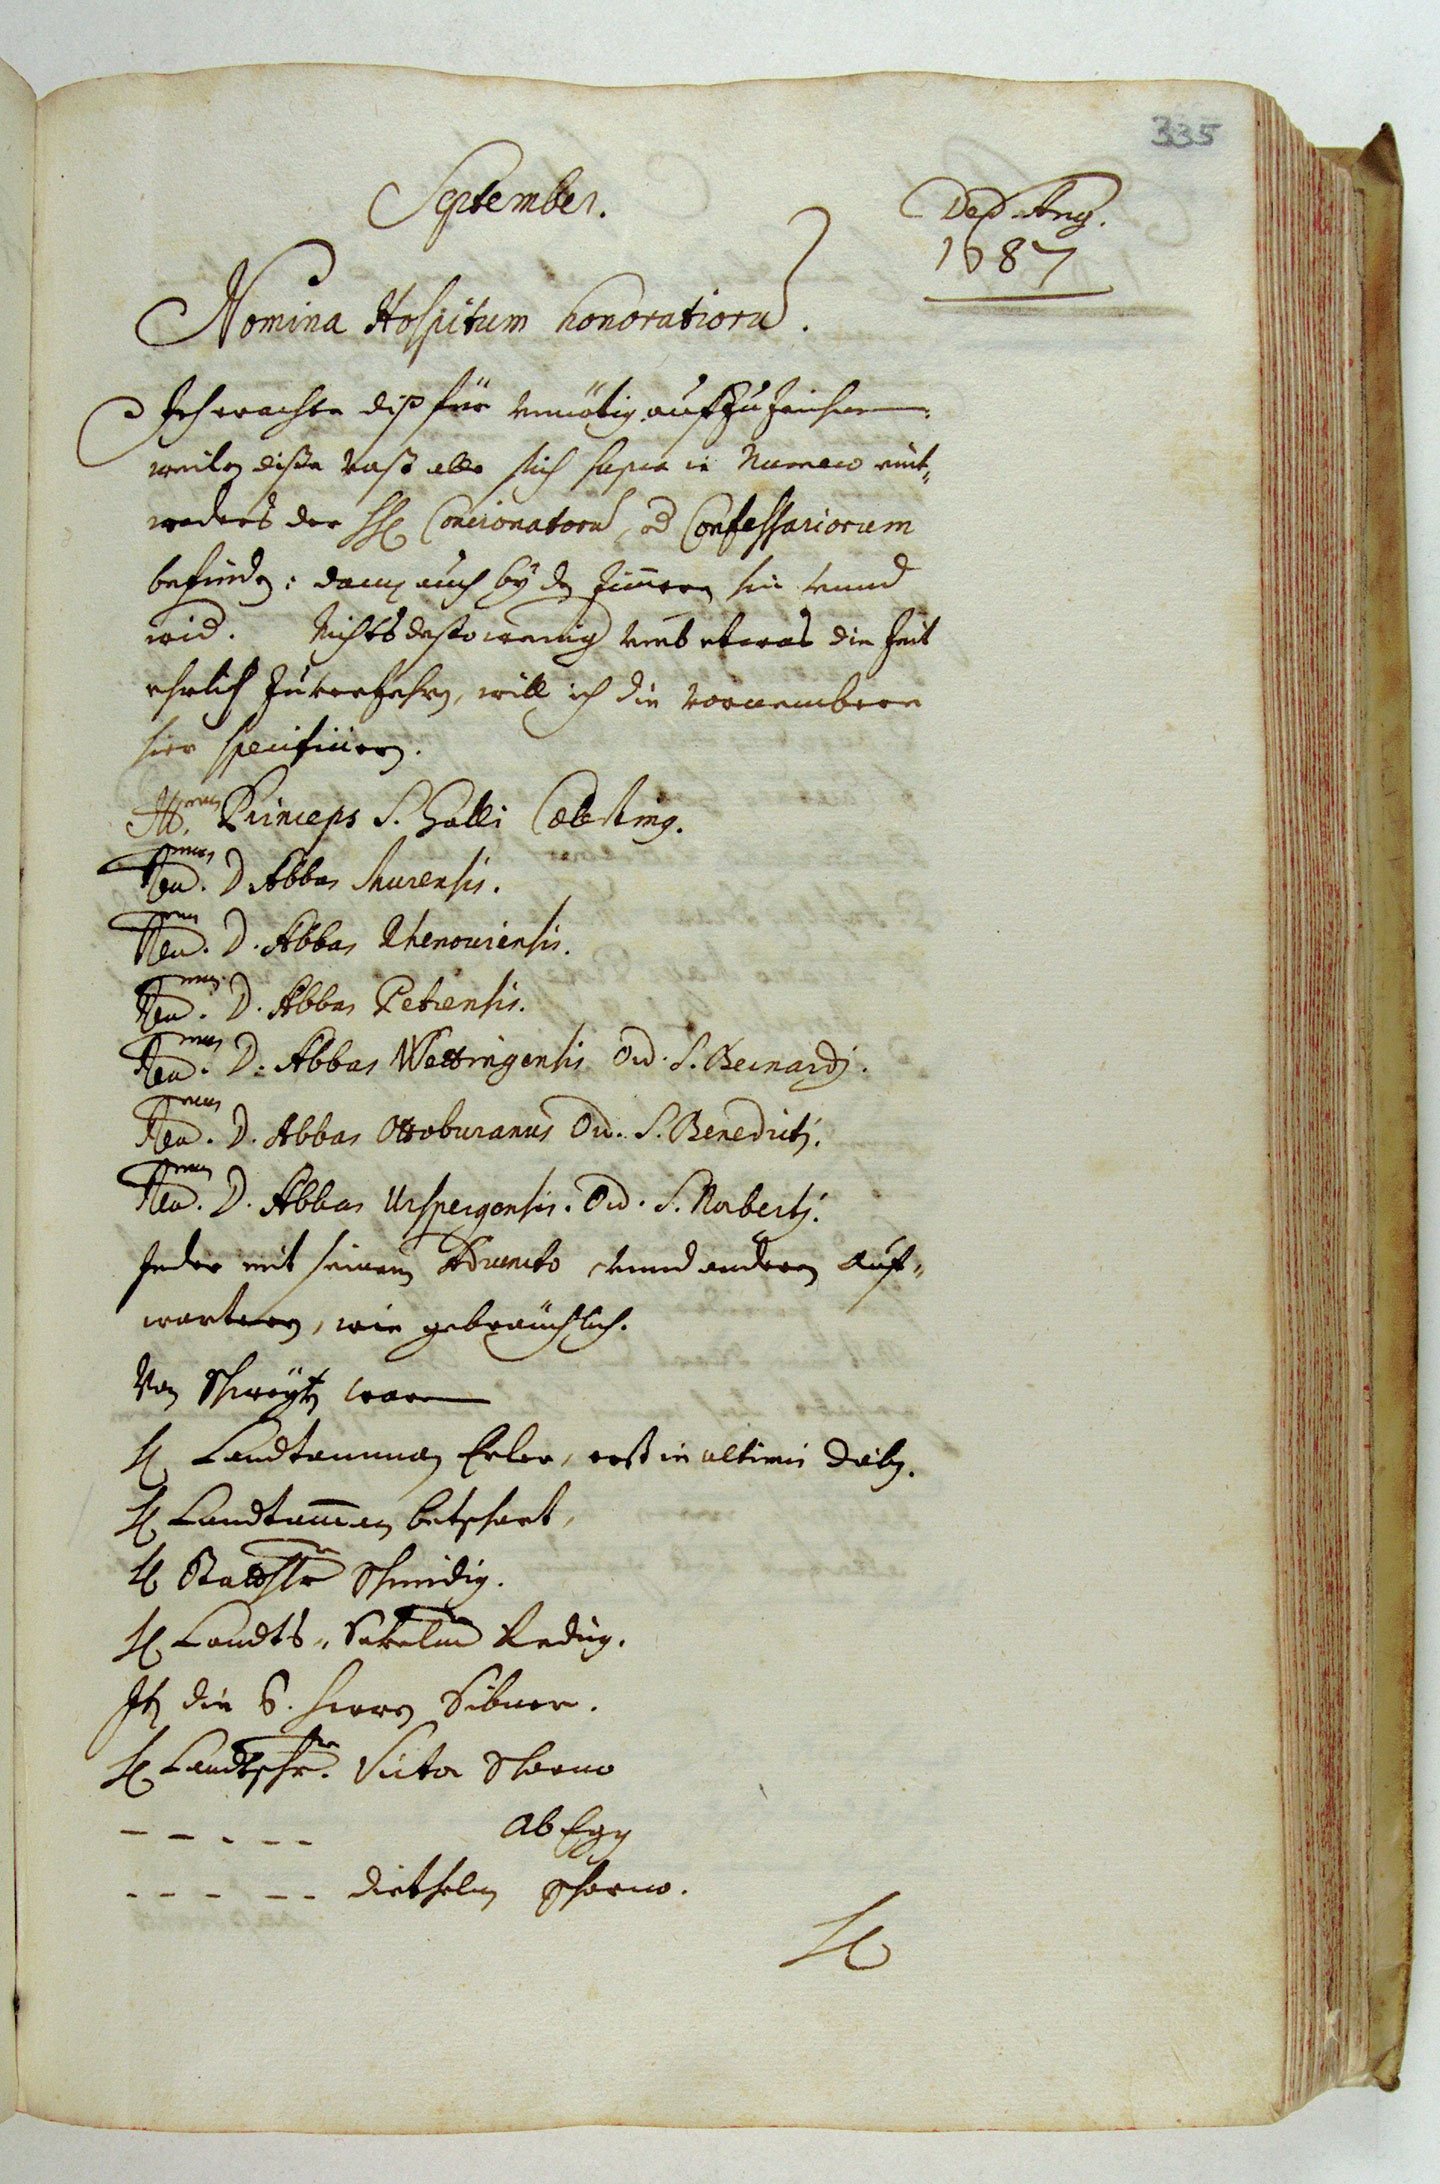 335
September.
Ded. Ang.
1687
Nomina Hospitum honoratioru.
Ich erachte diß für unnötig aufzuzeichnen
weilen dise vast alle sich supra in Numero eint-
weders der HH Concionatoru, od Confessariorum
befinden: dann auch by den Zimmern hin vnnd
wid. Nichts desto wenig vmb etwas die Zeit
ehrlich zu verzehren, will ich die vornembere
hier specificieren.
Ill.mus Princeps S. Galli Cœlesting.
Reu.mus D Abbas Murensis.
Reu.mus D. Abbas Rhenouiensis.
Reu.mus D. Abbas Petrensis.
Reu.mus D. Abbas Wettingensis Ord. S. Bernardj.
Reu.mus D. Abbas Ottoburanus Ord. S. Benedictj.
Reu.mus D. Abbas Urspergensis. Ord. S. Norbertj.
Jeder mit seinem Comitto vnnd anderen Auf-
wartern, wie gebräuchlich.
Von Schweytz waren
H Landtamman Erler, erst in ultimis dieb.
H Landtamman Betschart,
H Statthlr Schmidig.
H Landts-Sekelm Reding.
It die 6. Herren Sibner.
H Landtschr. Victor Schorno
- - - - - Ab Egg
- - - - - Diethelm Schorno.
H